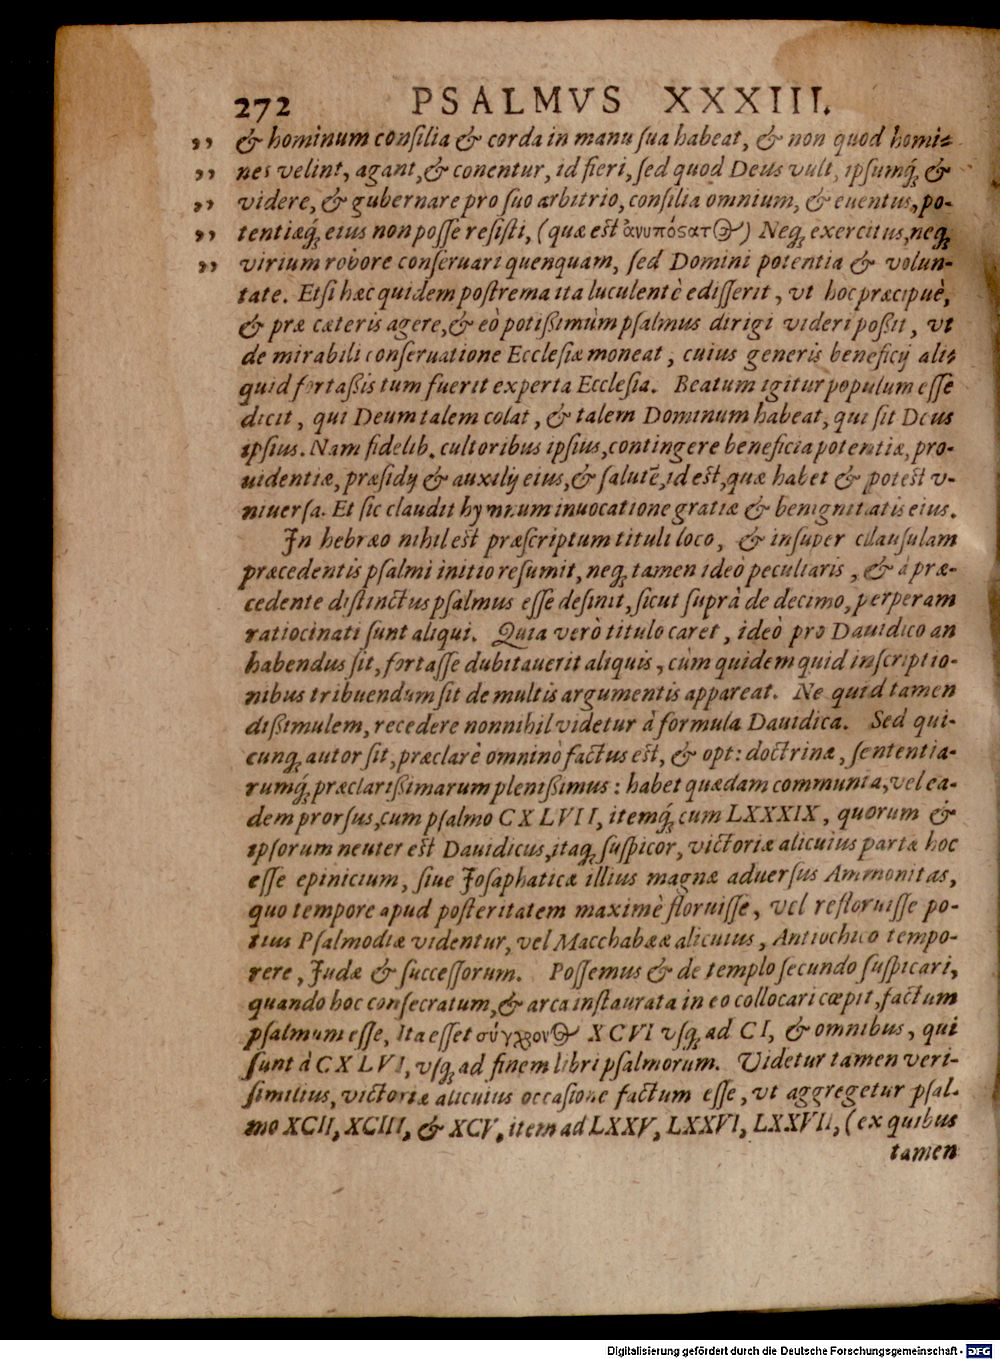 272 PSALMVS XXXIII.
„ & hominum consilia & corda in manu sua habeat, & non quod homi=
„ nes velint, agant, & conentur, id fieri, sed quod Deus vult, ipsumq́; &
„ videre, & gubernare pro suo arbitrio, consilia omnium, & euentus, po-
„ tentiæq́; eius non posse resisti, (quæ est ἀνυπόςατ⊕) Neq; exercitus, neq;
„ virium robore conseruari quenquam, sed Domini potentia & volun-
tate. Etsi hæc quidem postrema ita luculentè edisserit, vt hoc præcipuè,
& præ cæteris agere, & eò potißimùm psalmus dirigi videri poßit, vt
de mirabili conseruatione Ecclesiæ moneat, cuius generis beneficij ali=
quid fortaßis tum fuerit experta Ecclesia. Beatum igitur populum esse
dicit, qui Deum talem colat, & talem Dominum habeat, qui sit Deus
ipsius. Nam fidelib. cultoribus ipsius, contingere beneficia potentiæ, pro-
uidentiæ, præsidij & auxilij eius, & salutē, id est, quæ habet & potest v-
niuersa. Et sic claudit hymnum inuocatione gratiæ & benignitatis eius.
In hebræo nihil est præscriptum tituli loco, & insuper clausulam
præcedentis psalmi initio resumit, neq; tamen ideò peculiaris, & à præ-
cedente distinctus psalmus esse desinit, sicut suprà de decimo, perperam
ratiocinati sunt aliqui. Quia verò titulo caret, ideò pro Dauidico an
habendus sit, fortasse dubitauerit aliquis, cùm quidem quid inscriptio-
nibus tribuendum sit de multis argumentis appareat. Ne quid tamen
dißimulem, recedere nonnihil videtur à formula Dauidica. Sed qui-
cunq; autor sit, præclarè omninò factus est, & opt: doctrinæ, sententia-
rumq́; præclarißimarum plenißimus: habet quædam communia, vel ea-
dem prorsus, cum psalmo CXLVII, itemq́; cum LXXXIX, quorum &
ipsorum neuter est Dauidicus, itaq; suspicor, victoriæ alicuius partæ hoc
esse epinicium, siue Josaphaticæ illius magnæ aduersus Ammonitas,
quo tempore apud posteritatem maximè floruisse, vel refloruisse po-
tius Psalmodiæ videntur, vel Macchabææ alicuius, Antiochico tempo-
rere, Judæ & successorum. Possemus & de templo secundo suspicari,
quando hoc consecratum, & arca instaurata in eo collocari cœpit, factum
psalmum esse, Ita esset σύγχρον⊕ XCVI vsq; ad CI, & omnibus, qui
sunt à CXLVI, vsq; ad finem libri psalmorum. Videtur tamen veri-
similius, victoriæ alicuius occasione factum esse, vt aggregetur psal-
mo XCII, XCIII, & XCV, item ad LXXV, LXXVI, LXXVII, (ex quibus
tamen
Digitalisierung gefördert durch die Deutsche Forschungsgemeinschaft - DFG